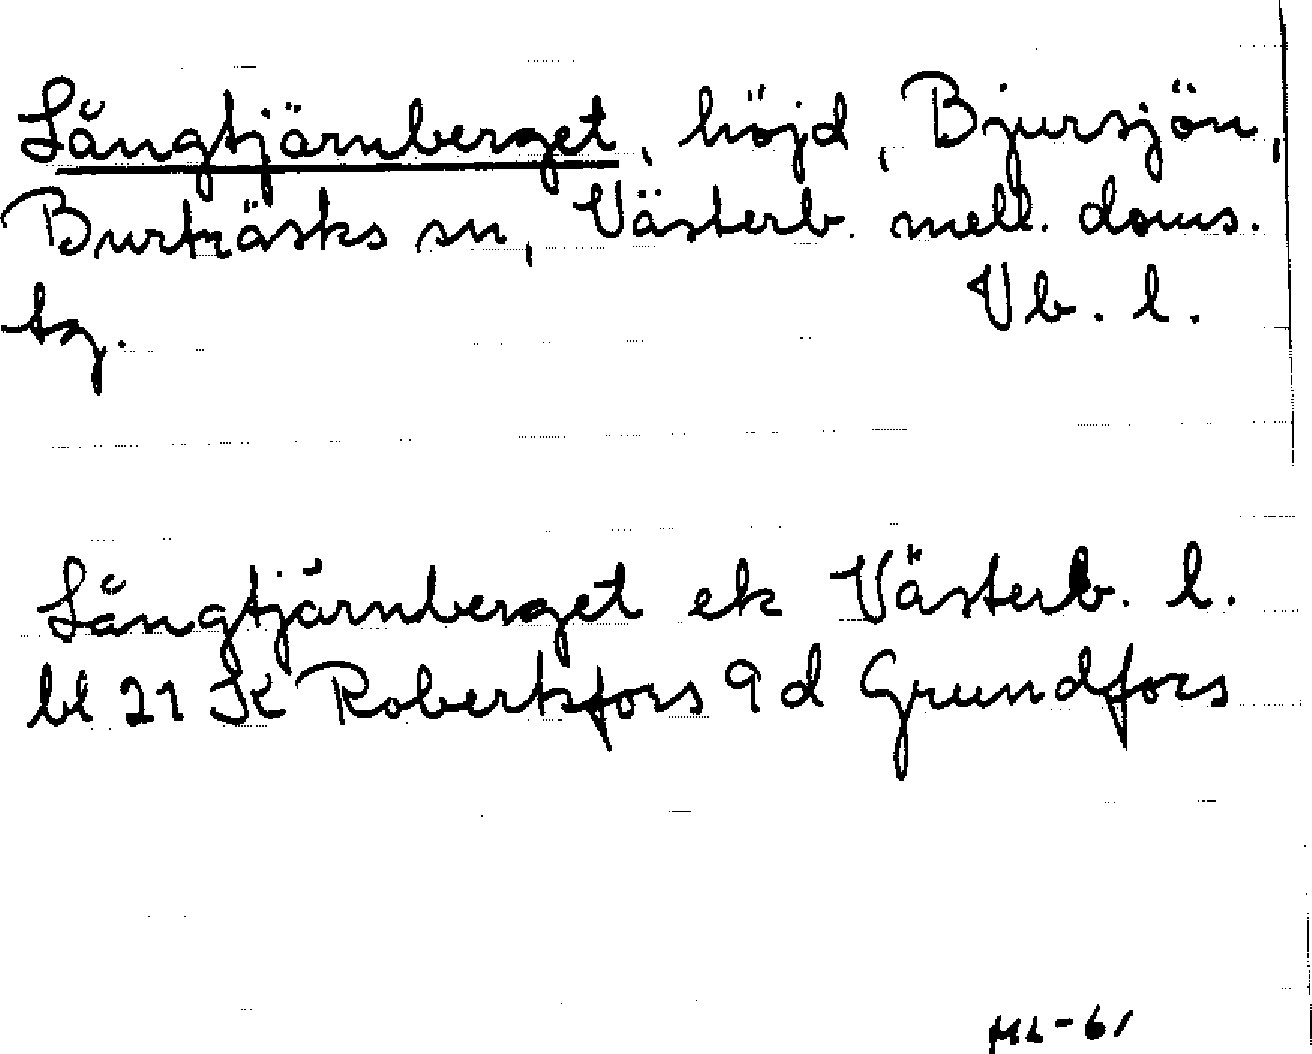 Långtjärnberget, höjd, Bjursjön,
Burträsks sn, Västerb. mell. doms.
tg.
Vb. l.
Långtjärnberget ek Västerb. l.
bl 21 K Robertsfors 9 d Grundfors
ML-61